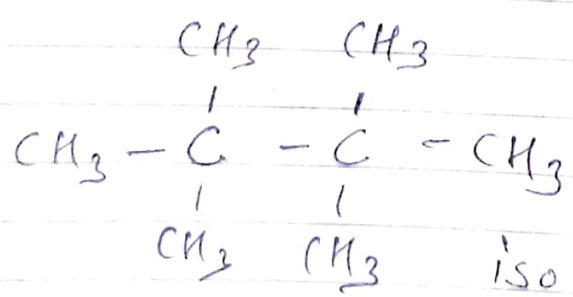 CH3 CH3
CH3 - C - C - CH3
CH3 CH3 iso